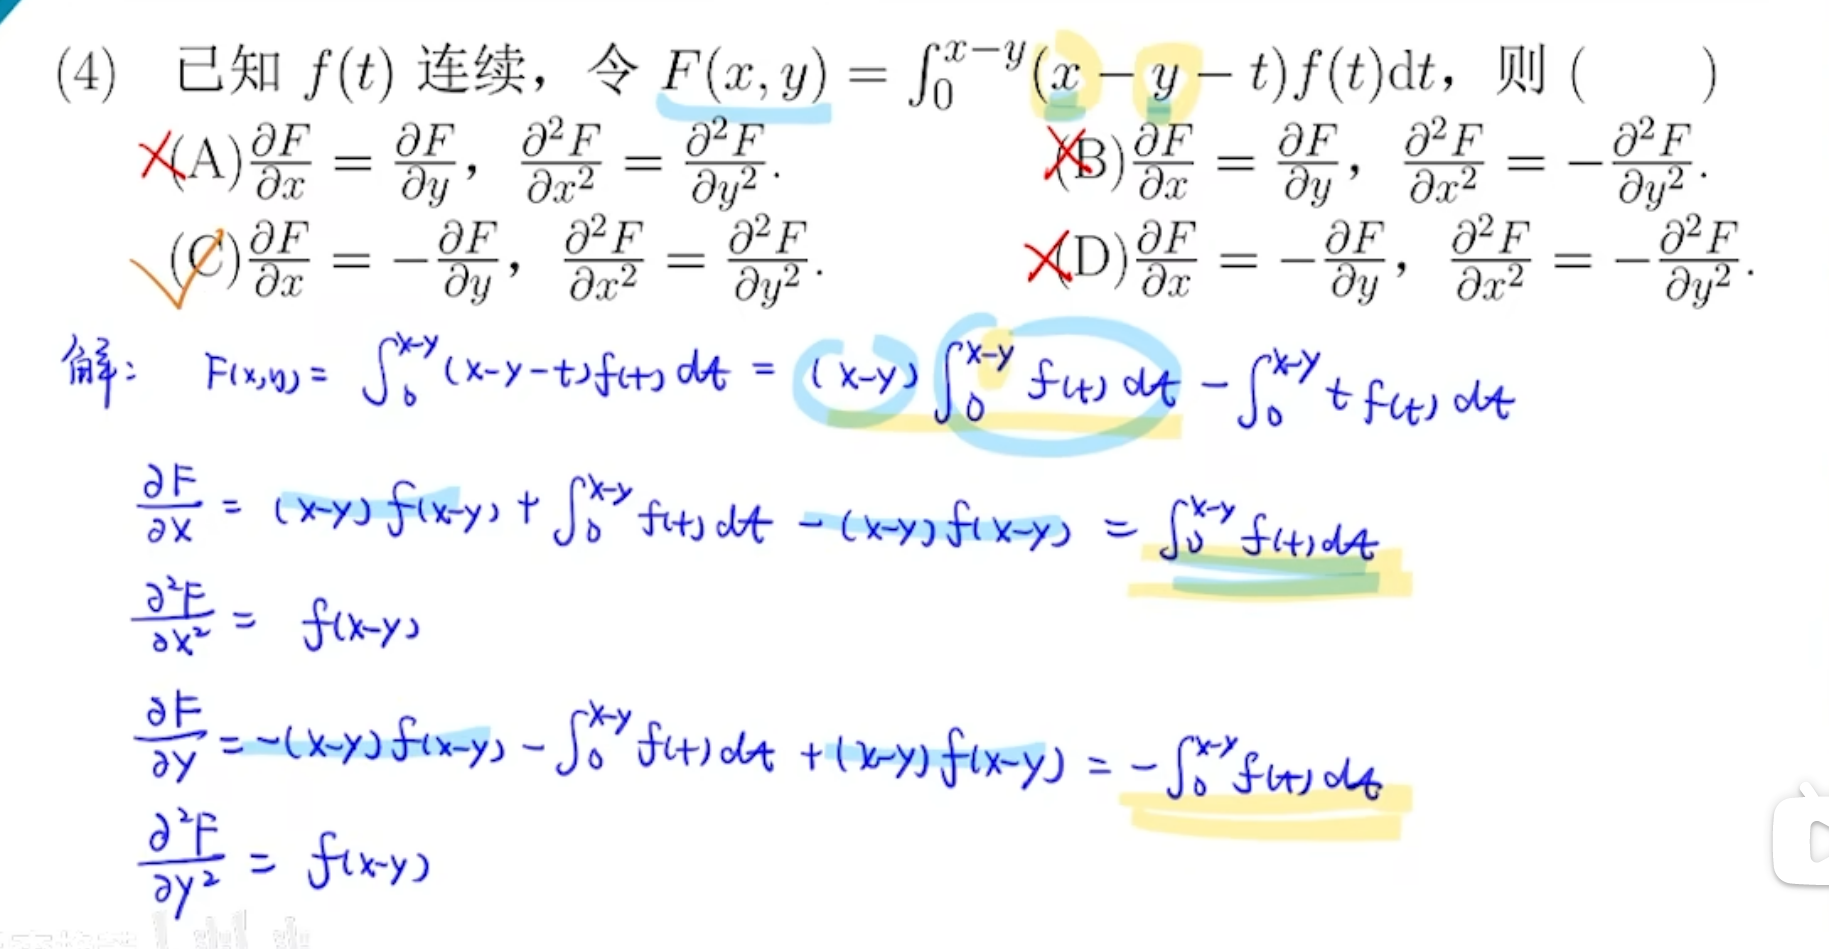 (4) 已知 f(t) 连续，令 F(x, y) = ∫₀^{x−y}(x − y − t)f(t)dt，则 (      )
(A) ∂F/∂x = ∂F/∂y，∂²F/∂x² = ∂²F/∂y². (B) ∂F/∂x = ∂F/∂y，∂²F/∂x² = −∂²F/∂y².
(C) ∂F/∂x = −∂F/∂y，∂²F/∂x² = ∂²F/∂y². (D) ∂F/∂x = −∂F/∂y，∂²F/∂x² = −∂²F/∂y².
解: F(x,y) = ∫₀^{x-y} (x-y-t)f(t) dt = (x-y) ∫₀^{x-y} f(t) dt - ∫₀^{x-y} t f(t) dt
∂F/∂x = (x-y) f(x-y) + ∫₀^{x-y} f(t) dt - (x-y) f(x-y) = ∫₀^{x-y} f(t) dt
∂²F/∂x² = f(x-y)
∂F/∂y = -(x-y) f(x-y) - ∫₀^{x-y} f(t) dt + (x-y) f(x-y) = - ∫₀^{x-y} f(t) dt
∂²F/∂y² = f(x-y)